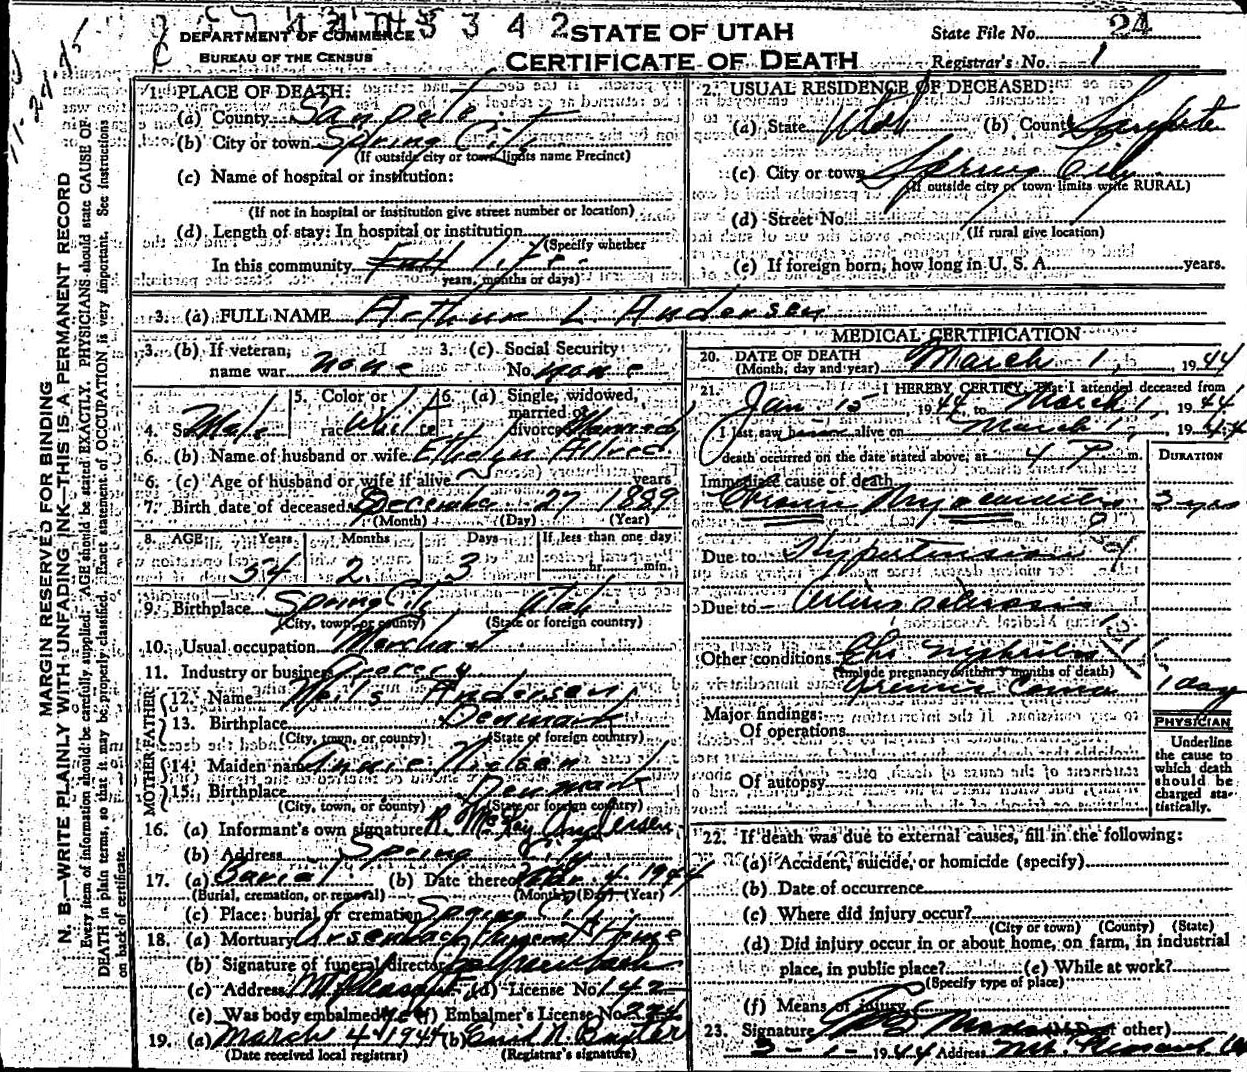 3 4 2
STATE OF UTAH
DEPARTMENT OF COMMERCE
BUREAU OF THE CENSUS
CERTIFICATE OF DEATH
State File No. 24
Registrar's No. 1
MARGIN RESERVED FOR BINDING
N. B.—WRITE PLAINLY WITH UNFADING INK—THIS IS A PERMANENT RECORD
Every item of information should be carefully supplied. AGE should be stated EXACTLY. PHYSICIANS should state CAUSE OF
DEATH in plain terms, so that it may be properly classified. Exact statement of OCCUPATION is very important. See instructions
on back of certificate.
1. PLACE OF DEATH:
(a) County Sanpete
(b) City or town Spring City
(If outside city or town limits name Precinct)
(c) Name of hospital or institution:
(If not in hospital or institution give street number or location)
(d) Length of stay: In hospital or institution
(Specify whether
In this community Full life
years, months or days)
2. USUAL RESIDENCE OF DECEASED:
(a) State Utah (b) County Sanpete
(c) City or town Spring City
(If outside city or town limits write RURAL)
(d) Street No.
(If rural give location)
(e) If foreign born, how long in U. S. A. years.
3. (a) FULL NAME Arthur L Andersen
3. (b) If veteran, name war none
3. (c) Social Security No. none
4. Sex Male
5. Color or race White
6. (a) Single, widowed, married or divorced Married
6. (b) Name of husband or wife Ethelyn Allred
6. (c) Age of husband or wife if alive years
7. Birth date of deceased December 27 1889
(Month) (Day) (Year)
8. AGE Years Months Days If less than one day
54 2 3 hr. min.
9. Birthplace Spring City Utah
(City, town, or county) (State or foreign country)
10. Usual occupation Merchant
11. Industry or business Grocery
FATHER
12. Name Neils Andersen
13. Birthplace Denmark
(City, town, or county) (State or foreign country)
MOTHER
14. Maiden name Annie Nielsen
15. Birthplace Denmark
(City, town, or county) (State or foreign country)
16. (a) Informant's own signature Andersen
(b) Address Spring City
17. (a) Burial (b) Date thereof Mar. 4 1944
(Burial, cremation, or removal) (Month) (Day) (Year)
(c) Place: burial or cremation Spring City
18. (a) Mortuary Ursenbach Funeral Home
(b) Signature of funeral director Ursenbach
(c) Address Mt Pleasant (d) License No. 142
(e) Was body embalmed (f) Embalmer's License No.
19. (a) March 4 1944 (b) Enid N. Baxter
(Date received local registrar) (Registrar's signature)
MEDICAL CERTIFICATION
20. DATE OF DEATH
(Month, day and year) March 1, 1944
21. I HEREBY CERTIFY, That I attended deceased from
Jan. 15, 1944, to March 1, 1944
I last saw alive on March 1, 1944
death occurred on the date stated above, at 4 P m.
DURATION
Immediate cause of death
Chronic Myocarditis 2 yrs
Due to Hypertension
Due to Arteriosclerosis
131
Other conditions Chr Nephritis
(Include pregnancy within 3 months of death)
Uremic Coma 1 day
Major findings:
Of operations
Of autopsy
PHYSICIAN
Underline
the cause to
which death
should be
charged sta-
tistically.
22. If death was due to external causes, fill in the following:
(a) Accident, suicide, or homicide (specify)
(b) Date of occurrence
(c) Where did injury occur?
(City or town) (County) (State)
(d) Did injury occur in or about home, on farm, in industrial
place, in public place? (e) While at work?
(Specify type of place)
(f) Means of injury
23. Signature (M.D. or other)
3-1-1944 Address Mt. Pleasant